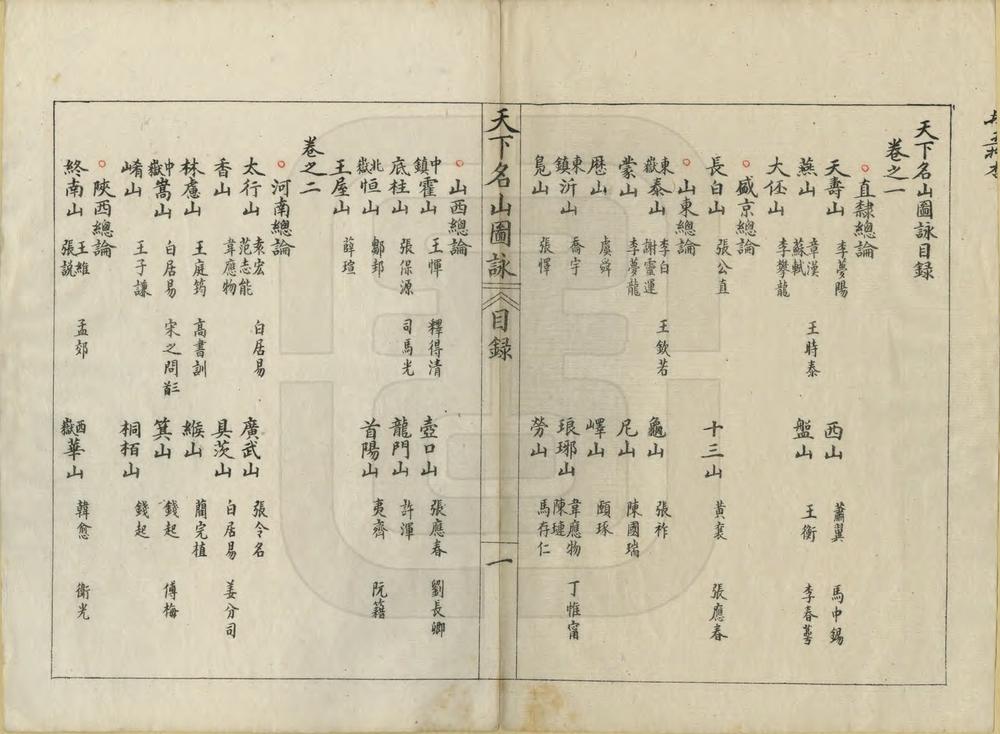 天下名山圖詠目録
卷之一
直隸總論
天壽山 李夢陽 西山 蕭翼 馬中錫
燕山 章漢 蘇軾 王時泰 盤山 王衡 李春
大伾山 李攀龍
盛京總論
長白山 張公直 十三山 黃裳 張應春
山東總論
東嶽泰山 李白 謝靈運 王欽若 龜山 張祚
蒙山 李夢龍 尼山 陳國瑞
歷山 虞舜 嶧山 顧琢
東鎮沂山 喬宇 琅琊山 韋應物 陳璉 丁惟甯
鳧山 張懌 勞山 馬存仁
天下名山圖詠 目録 一
山西總論
中鎮霍山 王惲 釋得清 壺口山 張應春 劉長卿
底柱山 張保源 司馬光 龍門山 許渾
北嶽恒山 鄒邦 首陽山 夷齊 阮籍
王屋山 薛瑄
卷之二
河南總論
太行山 袁宏 范志能 白居易 廣武山 張令名
香山 韋應物 具茨山 白居易 姜分司
林慮山 王庭筠 高書訓 緱山 藺完植
中嶽嵩山 白居易 宋之問三首 箕山 錢起 傅梅
崤山 王子謙 桐栢山 錢起
陝西總論
終南山 王維 張說 孟郊 西嶽華山 韓愈 衛光